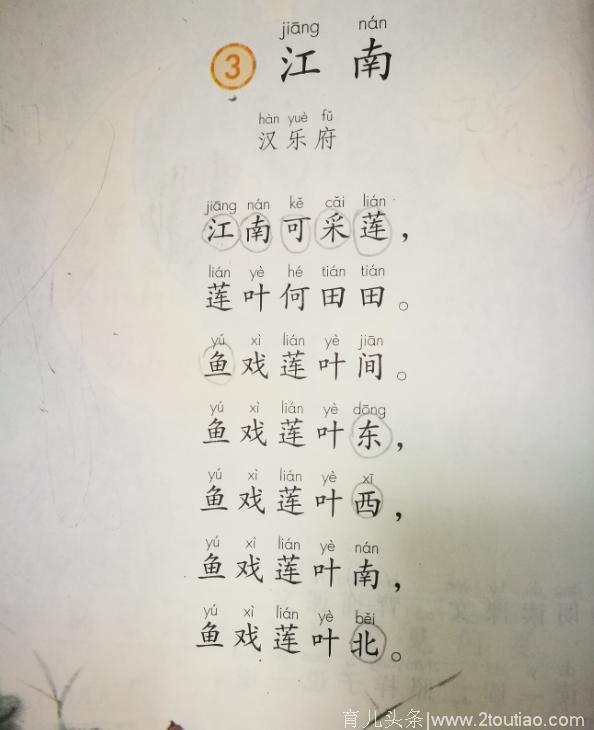 jiāng nán
3 江南
hàn yuè fǔ
汉乐府
jiāng nán kě cǎi lián
江南可采莲，
lián yè hé tián tián
莲叶何田田。
yú xì lián yè jiān
鱼戏莲叶间。
yú xì lián yè dōng
鱼戏莲叶东，
yú xì lián yè xī
鱼戏莲叶西，
yú xì lián yè nán
鱼戏莲叶南，
yú xì lián yè běi
鱼戏莲叶北。
育儿头条|www.2toutiao.com